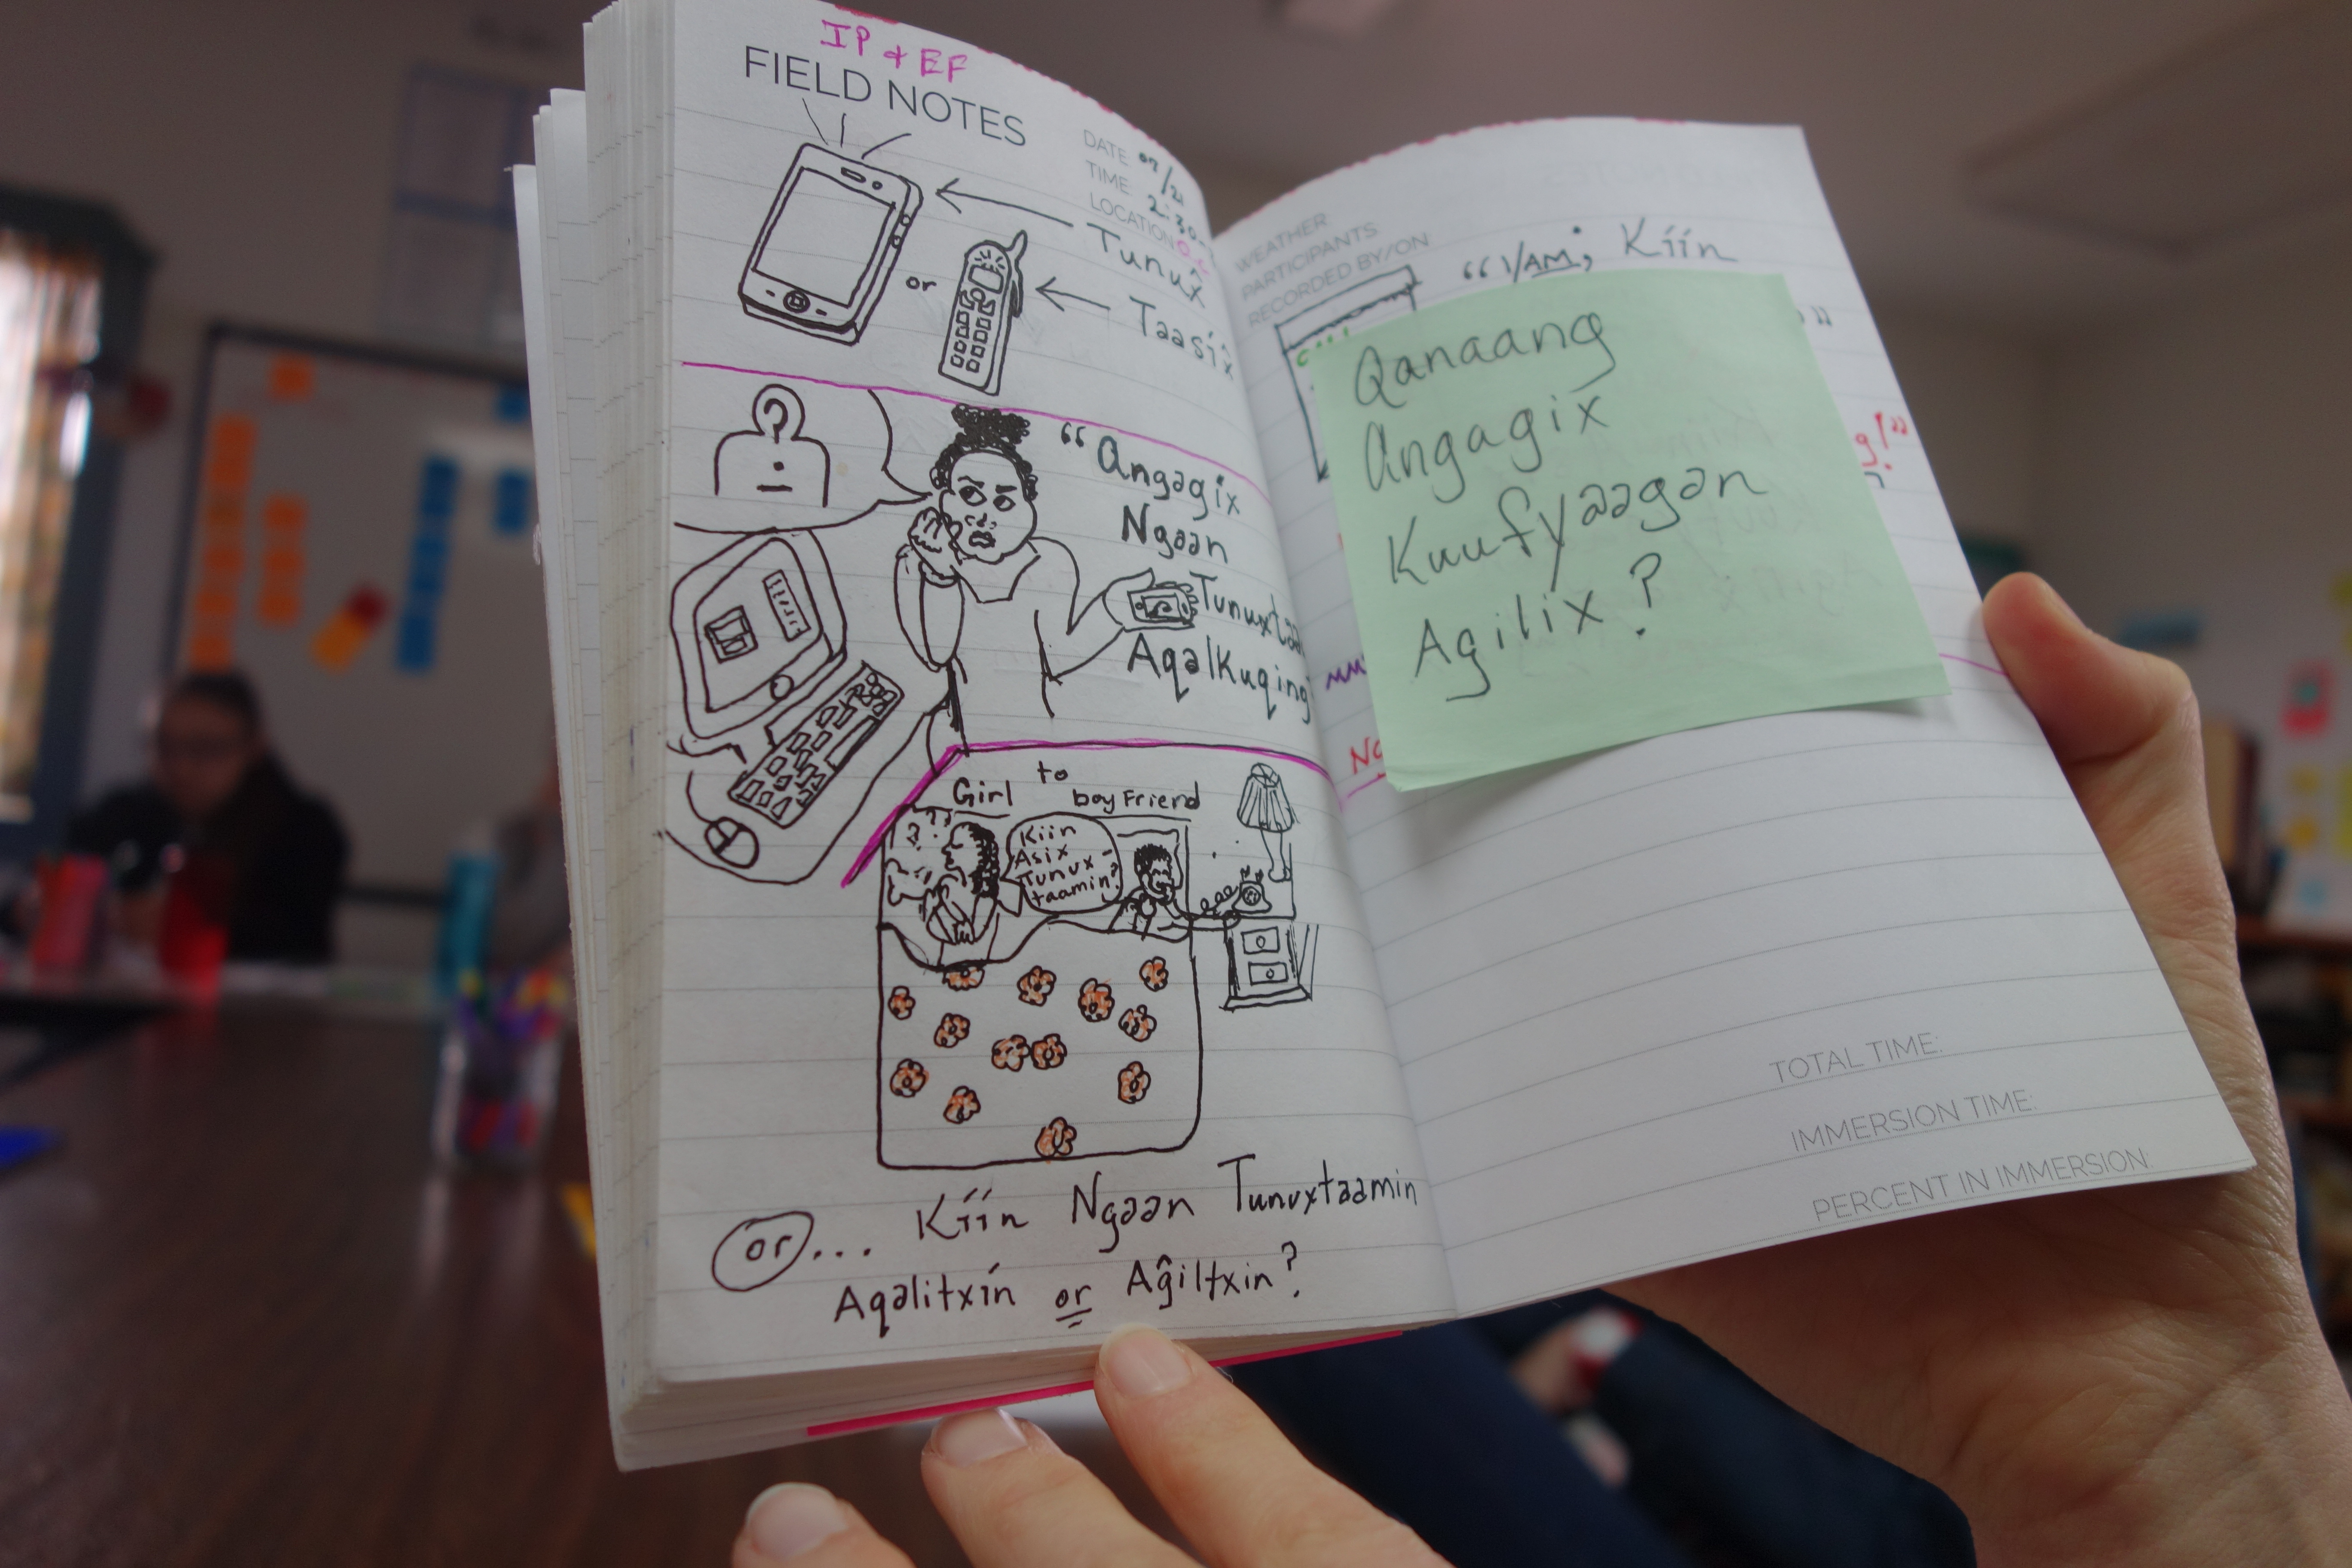 IP & EF
FIELD NOTES
DATE 07/21
TIME 2:30
LOCATION
Tunux̂
or
Taasix̂
"Angagix
Ngaan
Tunuxtaa
Aqalkuqing
Girl to boyfriend
Kiin
Asix
Tunux-
taamin?
or... Kíín Ngaan Tunuxtaamin
Aqalitxin or Aĝiltxin?
WEATHER
PARTICIPANTS
RECORDED BY/ON:
"1/AM; Kíín
Qanaang
Angagix̂
Kuufyaagan
Agilix?
g!"
TOTAL TIME:
IMMERSION TIME:
PERCENT IN IMMERSION: